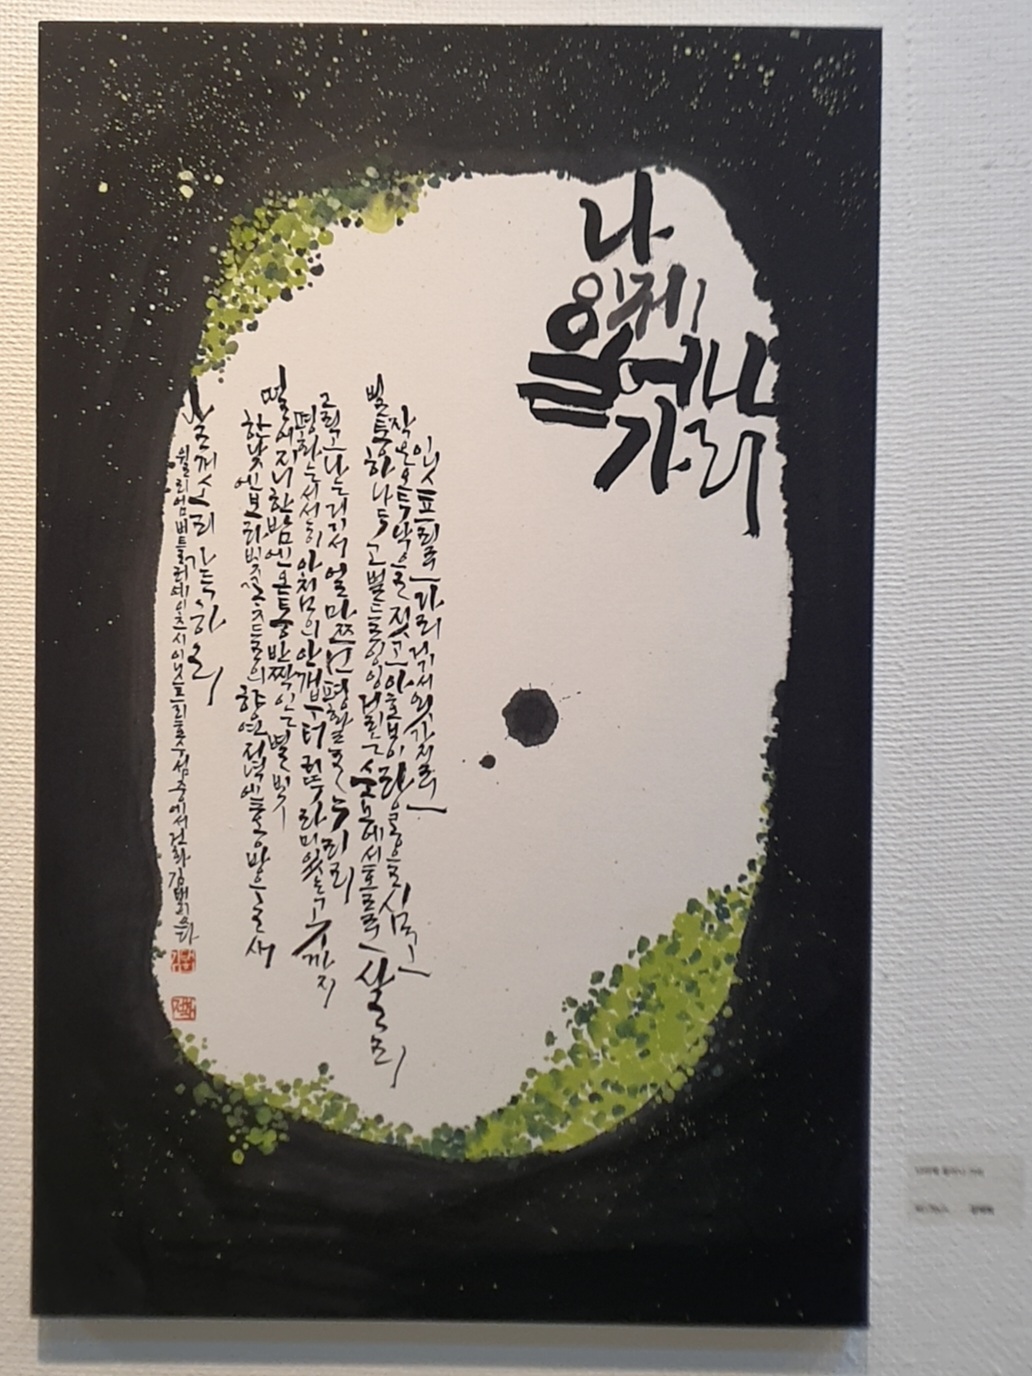 나
이제
일어나
가리
작은 오두막을 짓고 아홉 이랑 콩을 심고
벌통 하나 두고 벌들 잉잉거리는 숲속에서 홀로 살리
그리고 나는 거기서 얼마쯤 평화를 누리리
평화는 서서히 아침의 안개부터 귀뚜라미 우는 곳까지
떨어지니 한밤엔 온통 반짝이는 별빛
한낮엔 보랏빛 꽃들의 향연 저녁엔 홍방울새
날개소리 가득하리
윌리엄 버틀러 예이츠 시 이닛프리 호수 섬 중에서